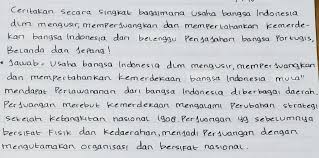 Ceritakan secara singkat bagaimana usaha bangsa Indonesia
dlm mengusir, memperjuangkan dan mempertahankan kemerde-
kan bangsa Indonesia dari belenggu Penjajahan bangsa Portugis,
Belanda dan Jepang!
• Jawab. Usaha bangsa Indonesia dlm mengusir, memperjuangkan
dan mempertahankan kemerdekaan bangsa Indonesia mula"
mendapat Perlawanan dari bangsa Indonesia diberbagai daerah.
Perjuangan merebut kemerdekaan mengalami Perubahan strategi
setelah kebangkitan nasional 1908. Perjuangan yg sebelumnya
bersifat Fisik dan kedaerahan, menjadi Perjuangan dengan
mengutamakan organisasi dan bersifat nasional.